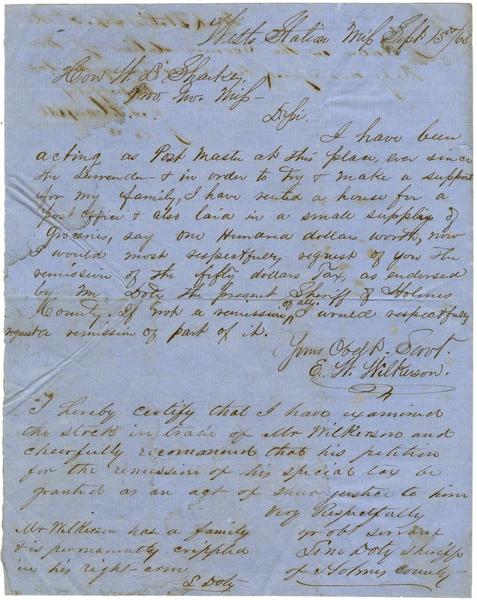 Wests Station Miss Sept 15th/65
Hon W. L. Sharkey
Prov. Gov. Miss -
D Sir.
I have been
acting as Post Master at this place, ever since
the Surrender & in order to try & make a support
for my family, I have rented a house for a
Post Office & also laid in a small supply of
Groceries, say one Hundred dollars worth, now
I would most respectfully request of you the
remission of the fifty dollars Tax, as endorsed
by Mr Doty the present Sheriff of Holmes
County. If not a remission of all, I would respectfully
request a remission of part of it.
Yours Obedt. Servt.
E. W. Wilkerson.
I hereby certify that I have examined
the stock in trade of Mr Wilkerson and
cheerfully recommend that his petition
for the remission of his special tax be
granted as an act of justice to him
Very Respectfully
yr obt servant
Lem Doty Sheriff
of Holmes County -
Mr Wilkerson has a family
& is permanently crippled
in his right - arm
L Doty -